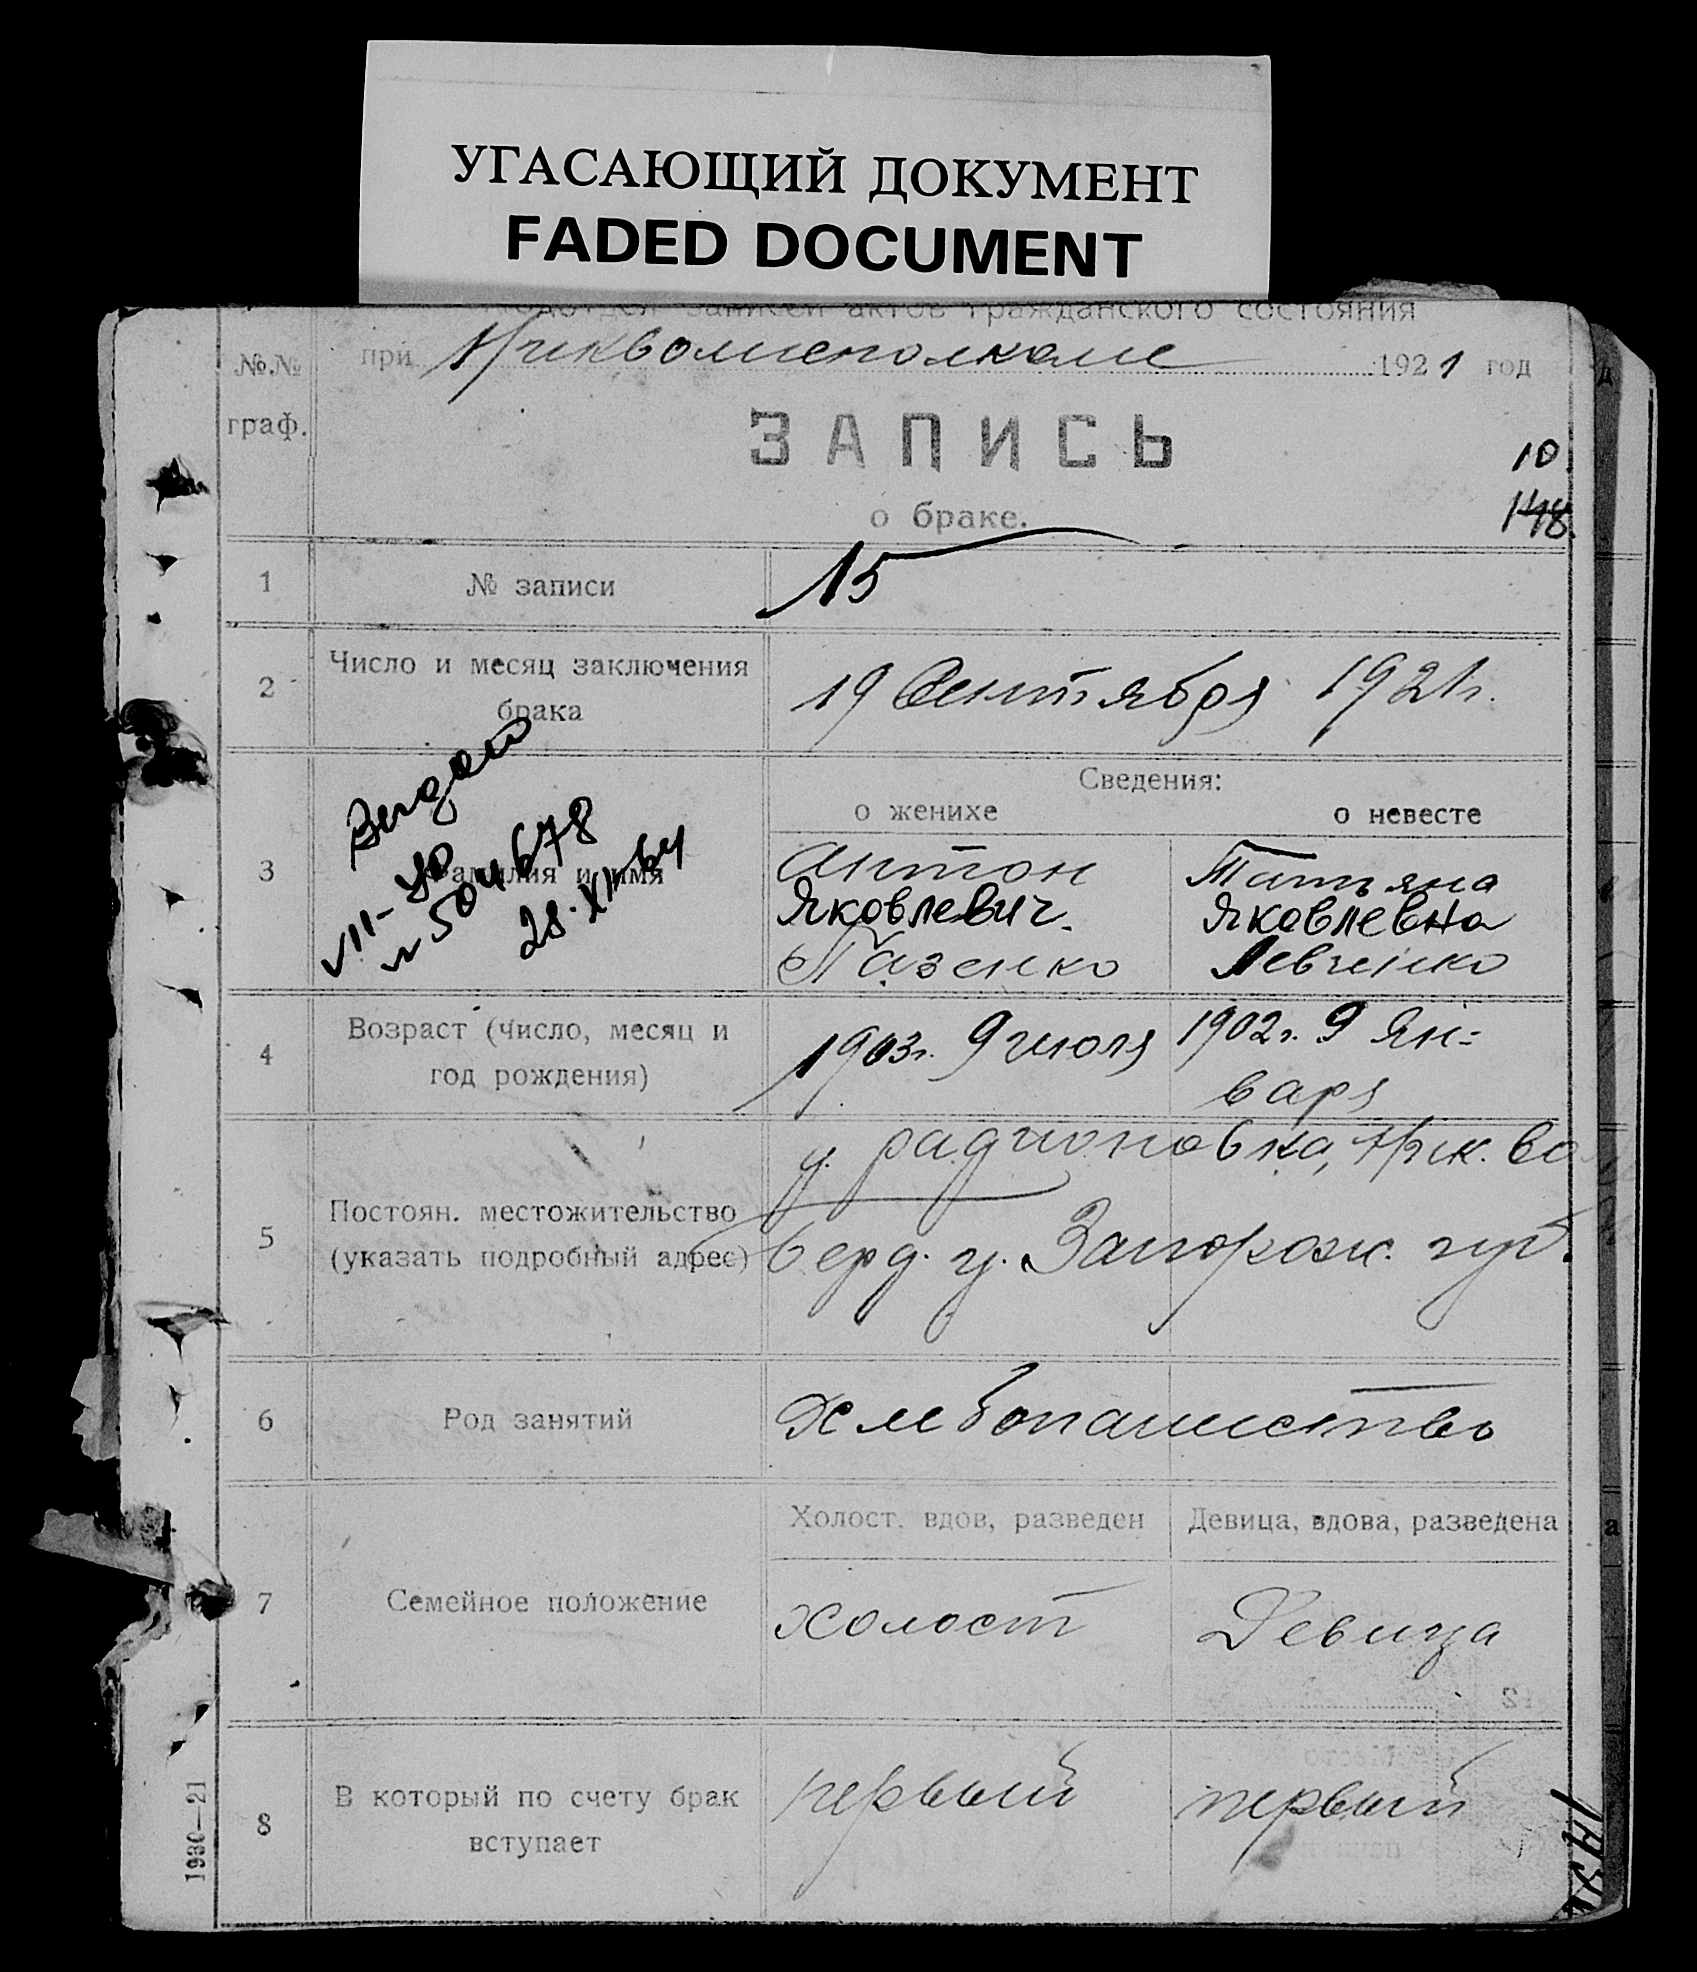 УГАСАЮЩИЙ ДОКУМЕНТ
FADED DOCUMENT
записей актов гражданского состояния
№.№ граф.
при 1921 год
ЗАПИСЬ
о браке.
10
148.
1 № записи 15
2 Число и месяц заключения брака 19 Сентября 1921г.
Сведения:
о женихе о невесте
3 Фамилия и имя
Антон
Яковлевич.
Пазенко
Татьяна
Яковлевна
Левченко
VII-УР
№ 504678
28.XII 64
4 Возраст (число, месяц и
год рождения)
1903г. 9 июля
1902г. 9 Ян=
варя
5 Постоян. местожительство
(указать подробный адрес)
д. радионовка,
Берд. у. Запорож. губ.
6 Род занятий хлебопашество
Холост. вдов, разведен Девица, вдова, разведена
7 Семейное положение холост Девица
8 В который по счету брак
вступает
первый первый
1930—21